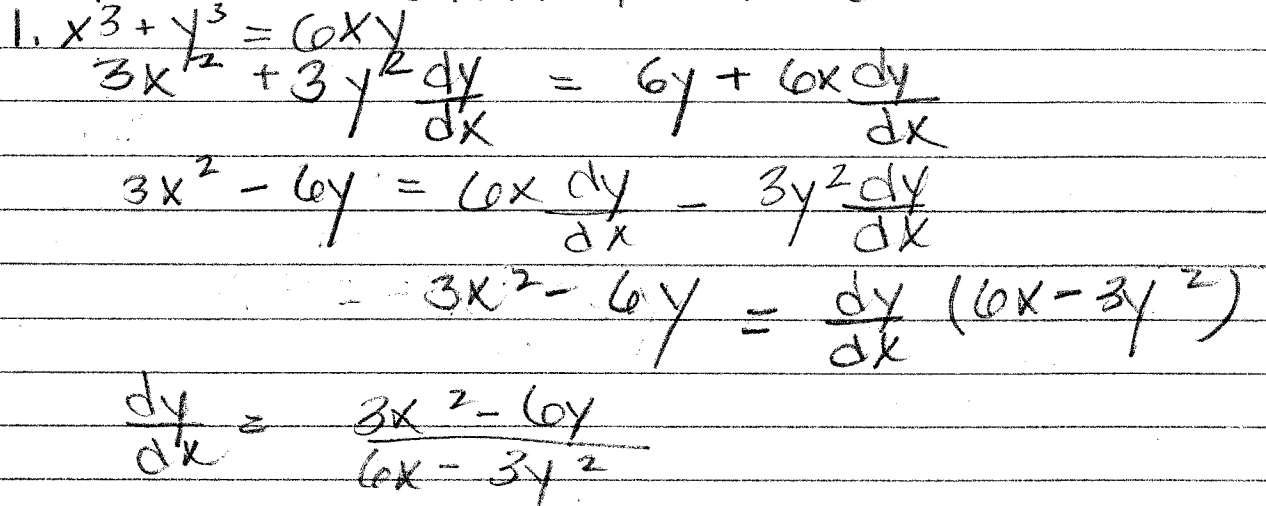 1. x³ + y³ = 6xy
3x² + 3y² dy/dx = 6y + 6x dy/dx
3x² - 6y = 6x dy/dx - 3y² dy/dx
3x² - 6y = dy/dx (6x - 3y²)
dy/dx = (3x² - 6y)/(6x - 3y²)